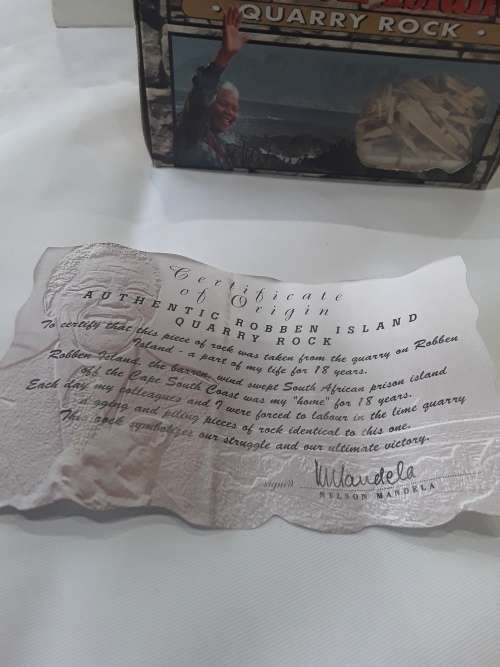 QUARRY ROCK
Certificate
of Origin
AUTHENTIC ROBBEN ISLAND
QUARRY ROCK
To certify that this piece of rock was taken from the quarry on Robben
Island - a part of my life for 18 years.
Robben Island, the barren, wind swept South African prison island
off the Cape South Coast was my "home" for 18 years.
Each day my colleagues and I were forced to labour in the lime quarry
digging and piling pieces of rock identical to this one.
This rock symbolizes our struggle and our ultimate victory.
signed Mandela
NELSON MANDELA